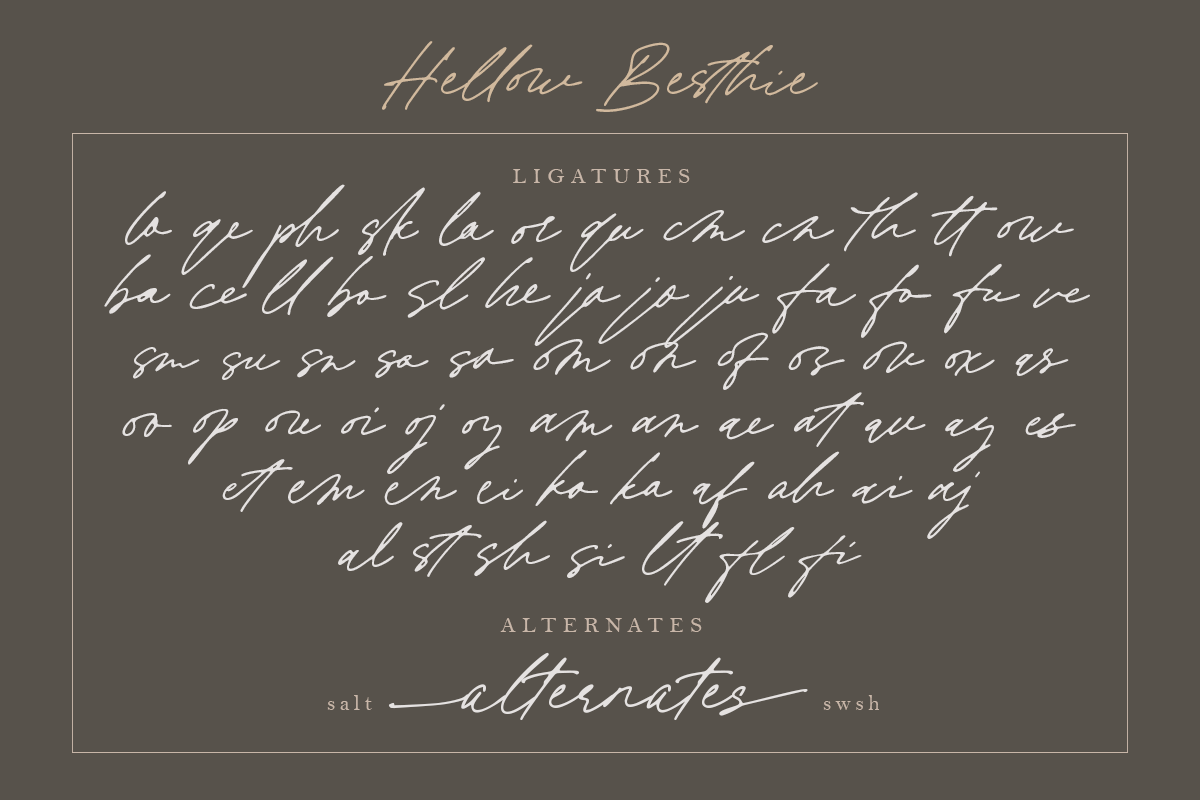 Hellow Besthie
LIGATURES
lo ge ph sk la or qu cm cn th tt ow
ba ce ll bo sl he ja jo ju fa fo fu ve
sm su sn so sa om on of os ov ox as
oo op ou oi oj oy am an ae at au ay es
et em en ei ko ka af ah ai aj
al st sh si lt fl fi
ALTERNATES
salt alternates swsh